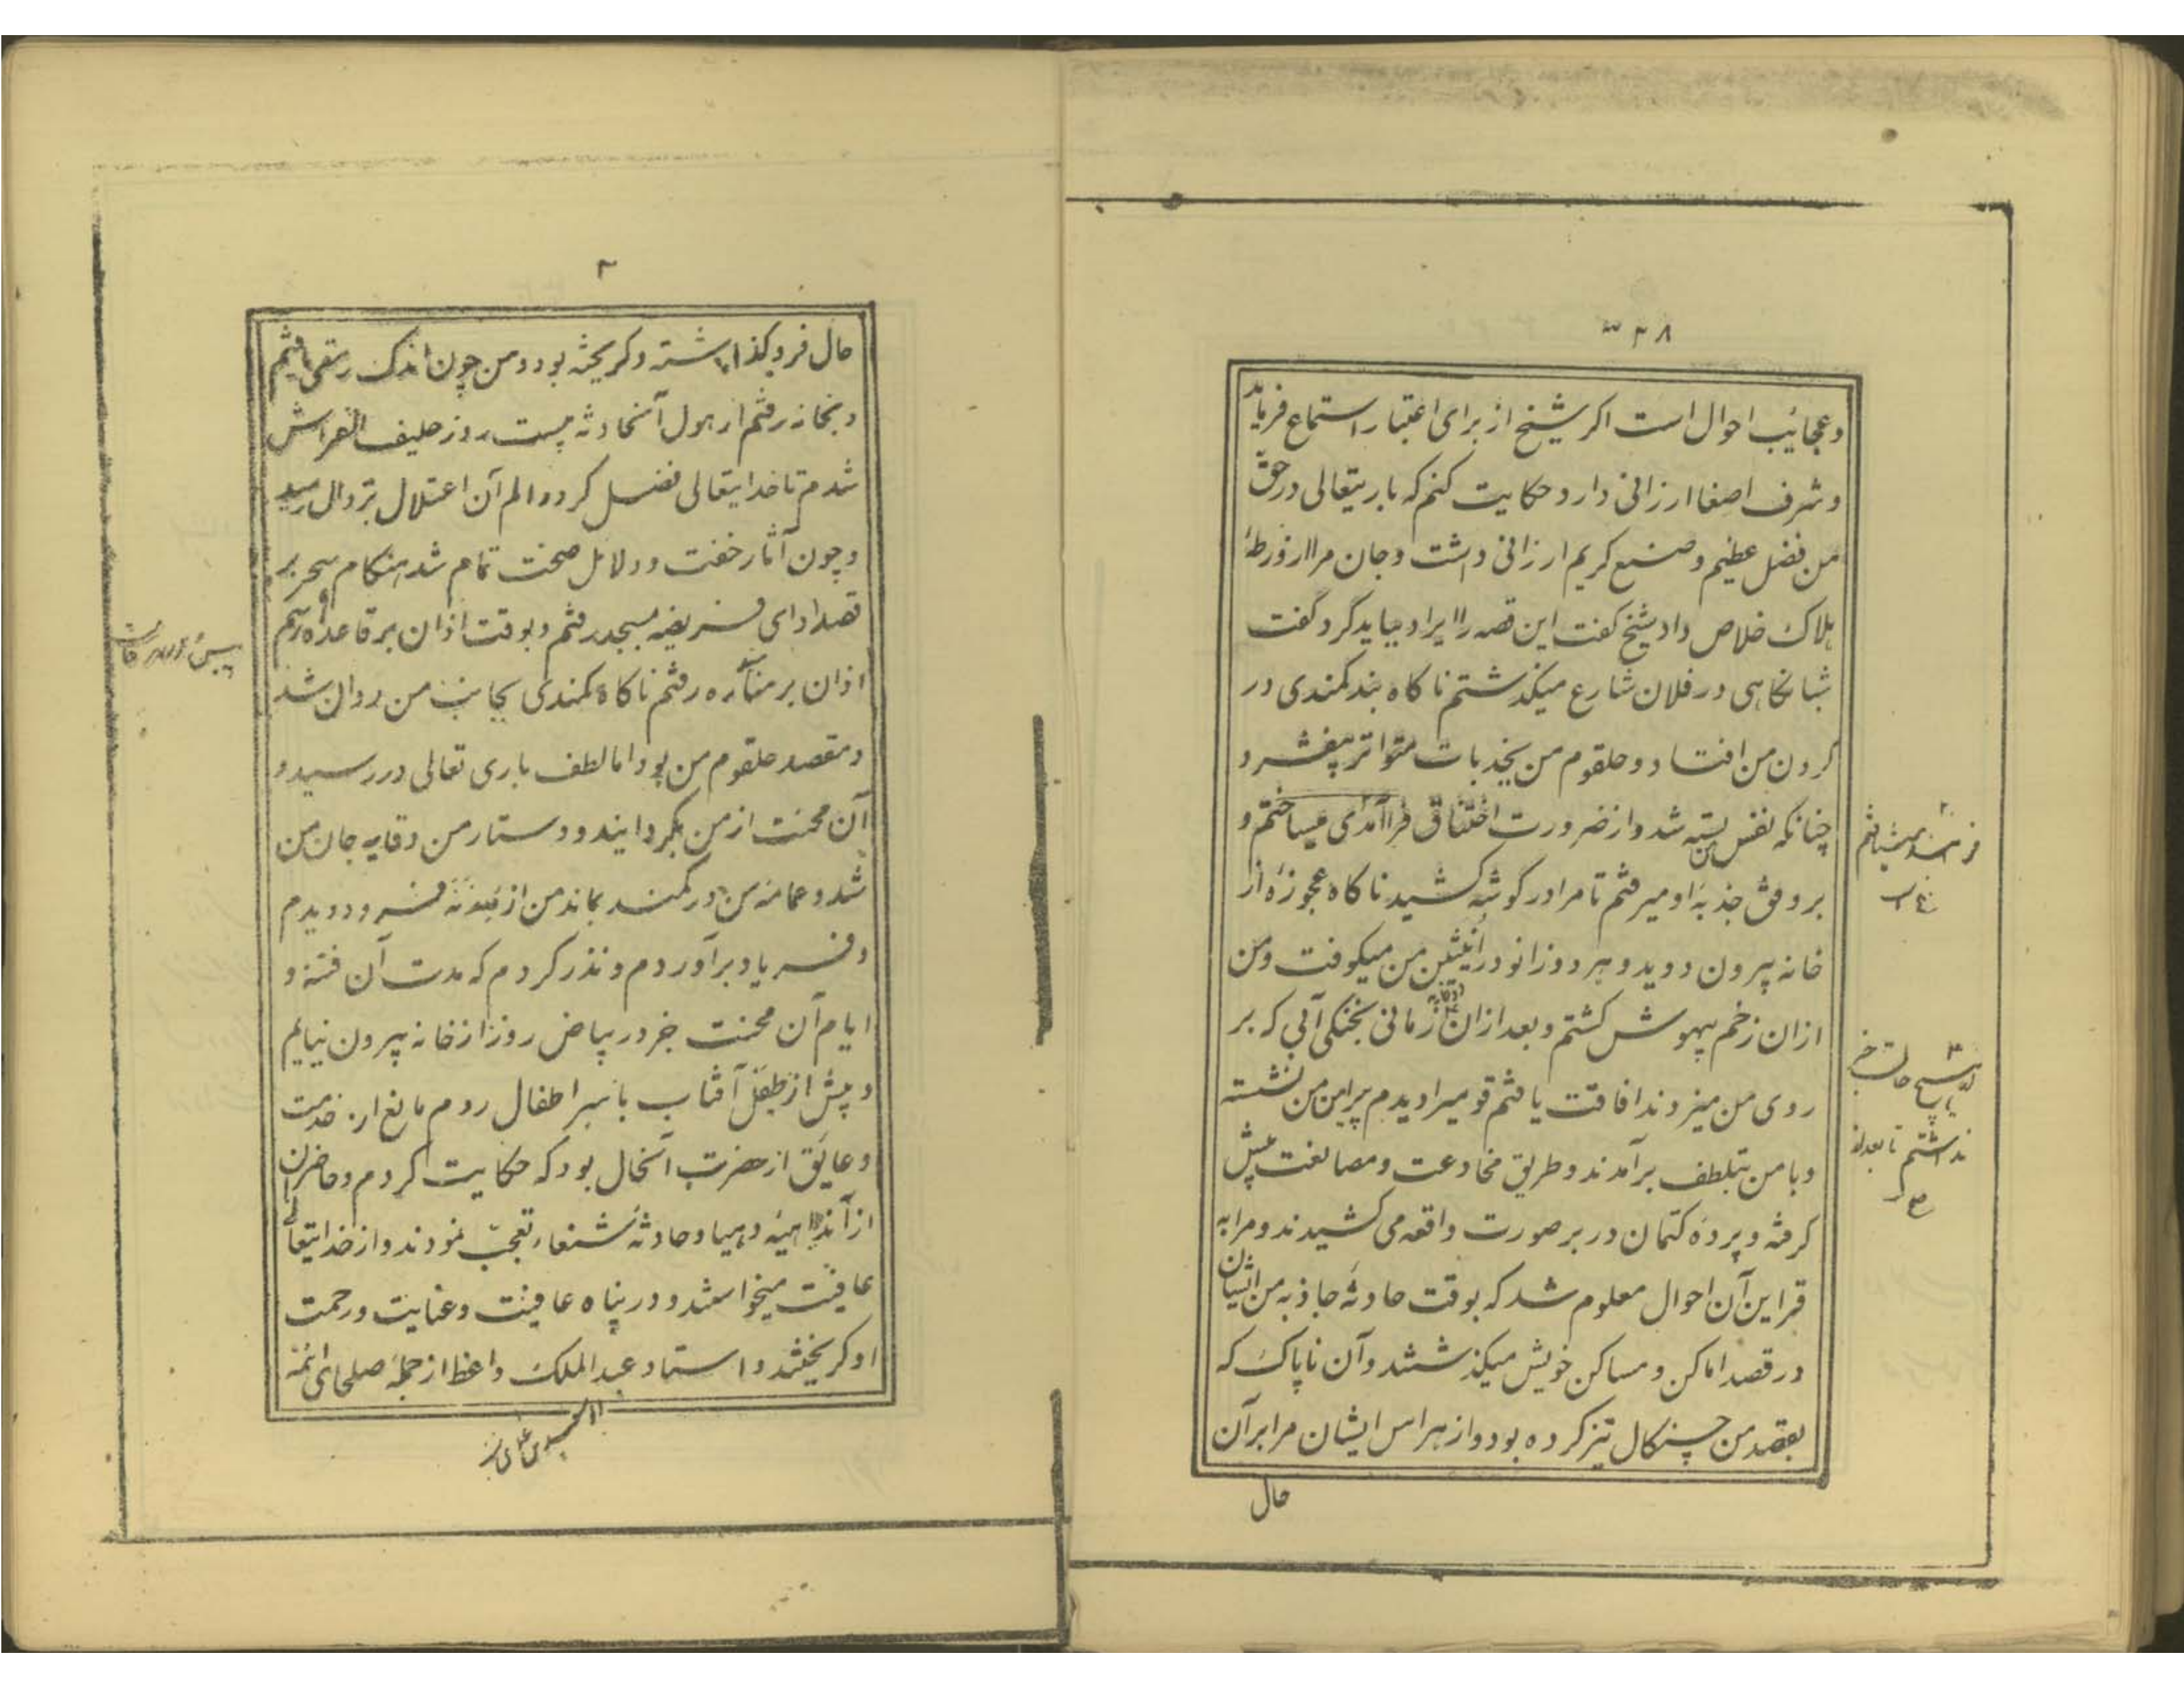 ۳۲۸
وعجائب احوال است اکر شیخ از برای اعتبار استماع فرماید
وشرف اصغا ارزانی دارد حکایت کنم که باریتعالی در حق
من فضل عظیم وصنع کریم ارزانی داشت وجان مرا از ورطهٔ
هلاک خلاص داد شیخ کفت این قصه را ایراد میباید کرد کفت
شبانکاهی در فلان شارع میکذشتم ناکاه بند کمندی در
کردن من افتاد و حلقوم من بجذبات متواتر بیفشرد
چنانکه نفس من بسته شد واز ضرورت اختناق فراآمدی میساختم و
بر وفق جذبهٔ او میرفتم تا مرا در کوشه کشید ناکاه عجوزهٔ از
خانه بیرون دوید و بهر دو زانو در انثیین من میکوفت ومن
ازان زخم بیهوش کشتم و بعد ازان زمانی بخنکی آبی که بر
روی من میزدند افاقت یافتم قومیرا دیدم پیرامن من نشسته
وبا من بتلطف برآمدند و طریق مخادعت ومصانعت پیش
کرفته و پردهٔ کتمان در بر صورت واقعه می کشیدند ومرا به
قراین آن احوال معلوم شد که بوقت حادثهٔ جاذبه من ایشان
در قصد اماکن و مساکن خویش میکذشتند و آن ناپاک که
بقصد من چنکال تیز کرده بود و از هراس ایشان مرا بر آن
حال
نداشتم تا بعد از
حال فرو کذاشته وکریخته بود ومن چون اندک رمقی یافتم
وبخانه رفتم از هول آنحادثه بیست روز حلیف الفراش
شدم تا خدایتعالی فضل کرد و الم آن اعتلال بزوال رسید
وچون آثار خفت ودلایل صحت تمام شد هنکام سحر بر
قصد ادای فریضه بمسجد رفتم و بوقت اذان بر قاعده ورسم
اذان بر مناره رفتم ناکاه کمندی بجانب من روان شد
ومقصد حلقوم من بود اما لطف باری تعالی در رسید و
آن محنت از من بکردانید ودستار من وقایه جان من
شد وعمامهٔ من در کمند بماند من از میذنه فرو دویدم
وفریاد برآوردم و نذر کردم که مدت آن فتنه و
ایام آن محنت جز در بیاض روز از خانه بیرون نیایم
و پیش از طفل آفتاب با سر اطفال روم مانع از خدمت
وعایق از حضرت آنحال بود که حکایت کردم وحاضران
از آن داهیهٔ دهیا وحادثهٔ شنعا تعجب نمودند واز خدایتعالی
عافیت میخواستند و در پناه عافیت وعنایت ورحمت
او کریختند و استاد عبد الملک واعظ از جملهٔ صلحای ائمهٔ